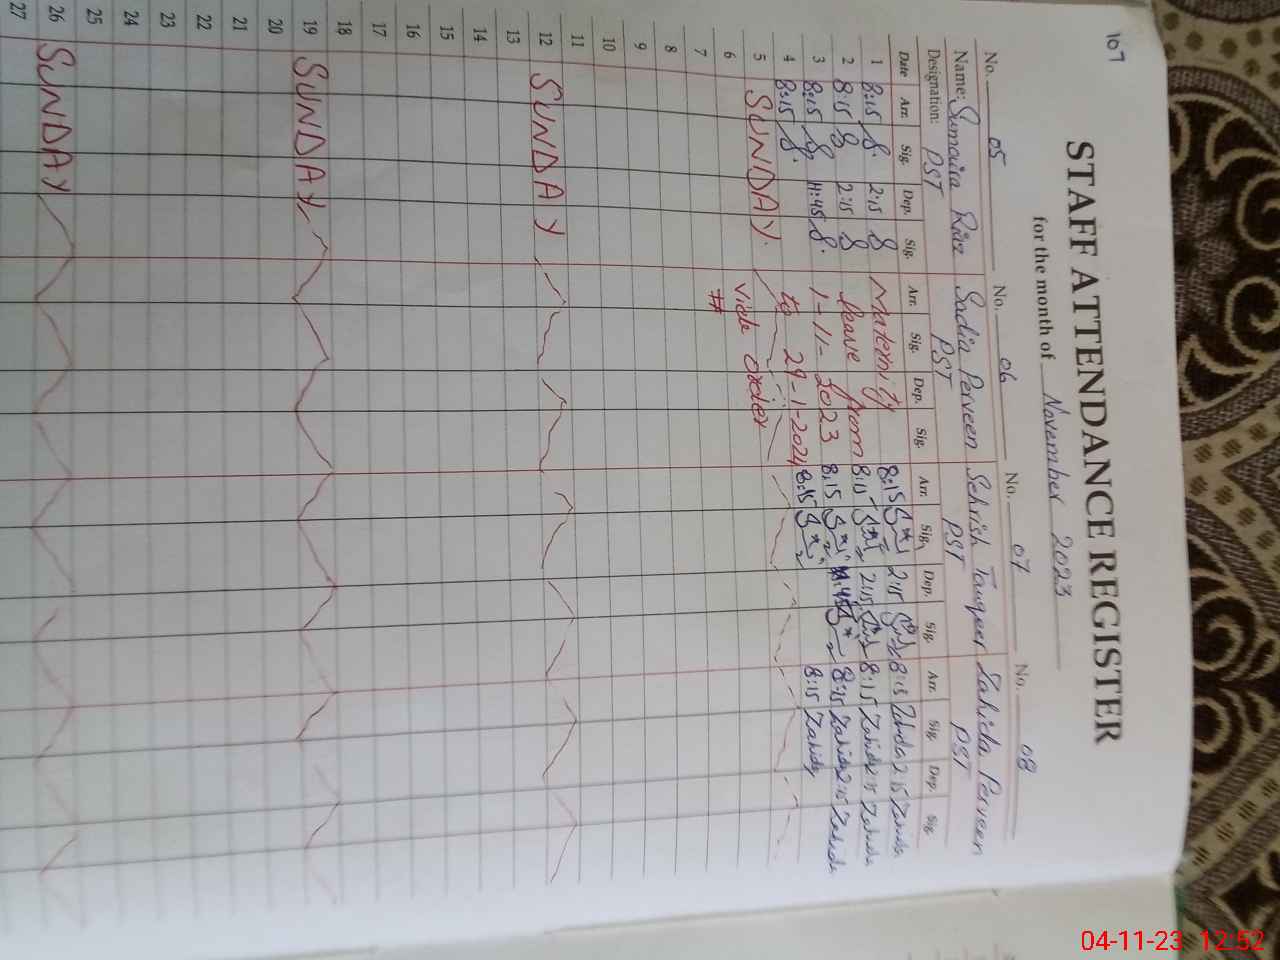 107
STAFF ATTENDANCE REGISTER
for the month of November 2023
No. 05 No. 06 No. 07 No. 08
Name: Sumaira Riaz Sadia Perveen Sehrish Tauqeer Zahida Perveen
Designation: PST PST PST PST
Date Arr. Sig. Dep. Sig. Arr. Sig. Dep. Sig. Arr. Sig. Dep. Sig. Arr. Sig. Dep. Sig.
1 8:15 2:15 Maternity 8:15 2:15 8:15 Zahida 2:15 Zahida
2 8:15 2:15 leave from 8:15 2:15 8:15 Zahida 2:15 Zahida
3 8:15 11:45 1-11-2023 8:15 11:45 8:15 Zahida 2:15 Zahida
4 8:15 to 29-1-2024 8:15 8:15 Zahida
5 SUNDAY. vide order
6 #
7
8
9
10
11
12 SUNDAY
13
14
15
16
17
18
19 SUNDAY
20
21
22
23
24
25
26 SUNDAY
27
04-11-23 12:52